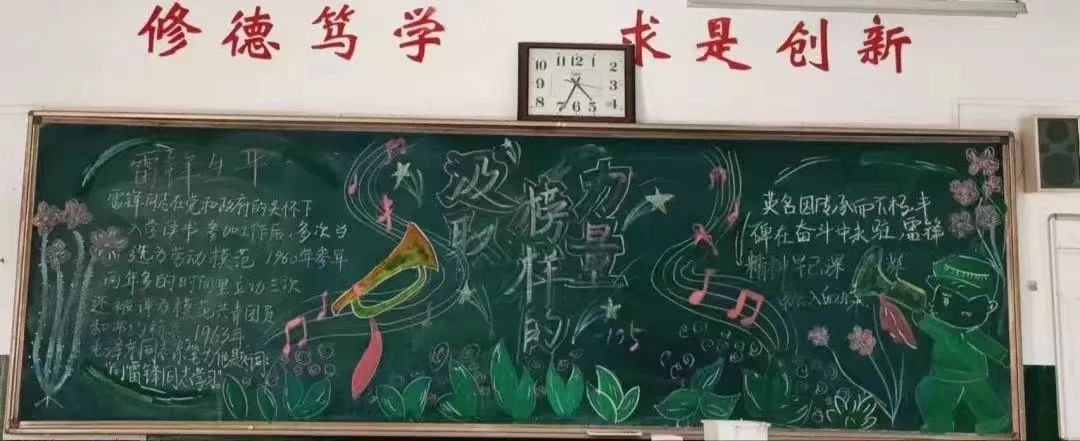 修德笃学 求是创新
汲取
榜样的
力量
雷锋生平
雷锋同志在党和政府的关怀下
入学读书参加工作后,多次当
选为劳动模范 1960年参军
两年多的时间里立功三次
还被评为模范共青团员
1963年
毛泽东同志亲笔为他题词:
"向雷锋同志学习"
英名因传承而不朽,丰
碑在奋斗中永驻,雷锋
精神早已